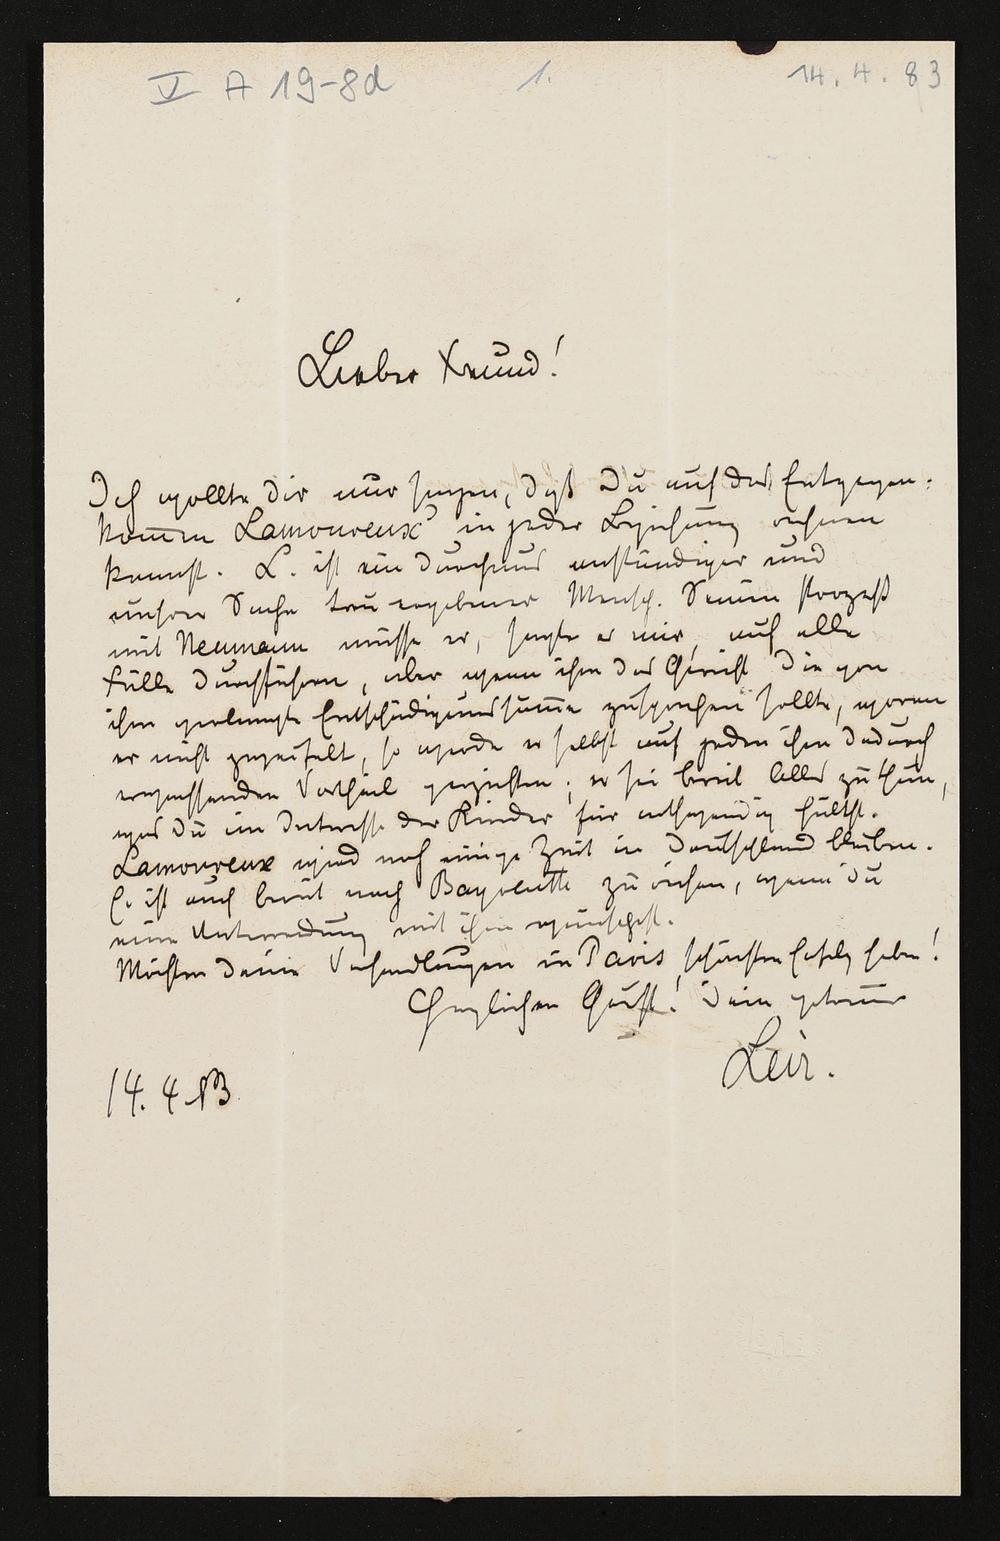 V A 19-8d 1. 14.4.83
Lieber Freund!
Ich wollte dir nur sagen, daß Du auf das Entgegen-
kommen Lamoureux' in jeder Beziehung rechnen
kannst. L. ist ein durchaus anständiger und
unsrer Sache treu ergebener Mensch. Seinen Prozeß
mit Neumann müsse er, sagte er mir, auf alle
Fälle durchführen, aber wenn ihm das Gericht die von
ihm verlangte Entschädigungssumme zusprechen sollte, woran
er nicht zweifelt, so werde er selbst auf jeden ihm dadurch
erwachsenden Vortheil verzichten; er sei bereit Alles zu thun,
was Du im Interesse der Kinder für nothwendig hältst.
Lamoureux wird noch einige Zeit in Deutschland bleiben.
Er ist auch bereit nach Bayreuth zu reisen, wenn Du
eine Unterredung mit ihm wünschest.
Möchten Deine Verhandlungen in Paris schönsten Erfolg haben!
Herzlichen Gruß! Dein getreuer
14.4.83